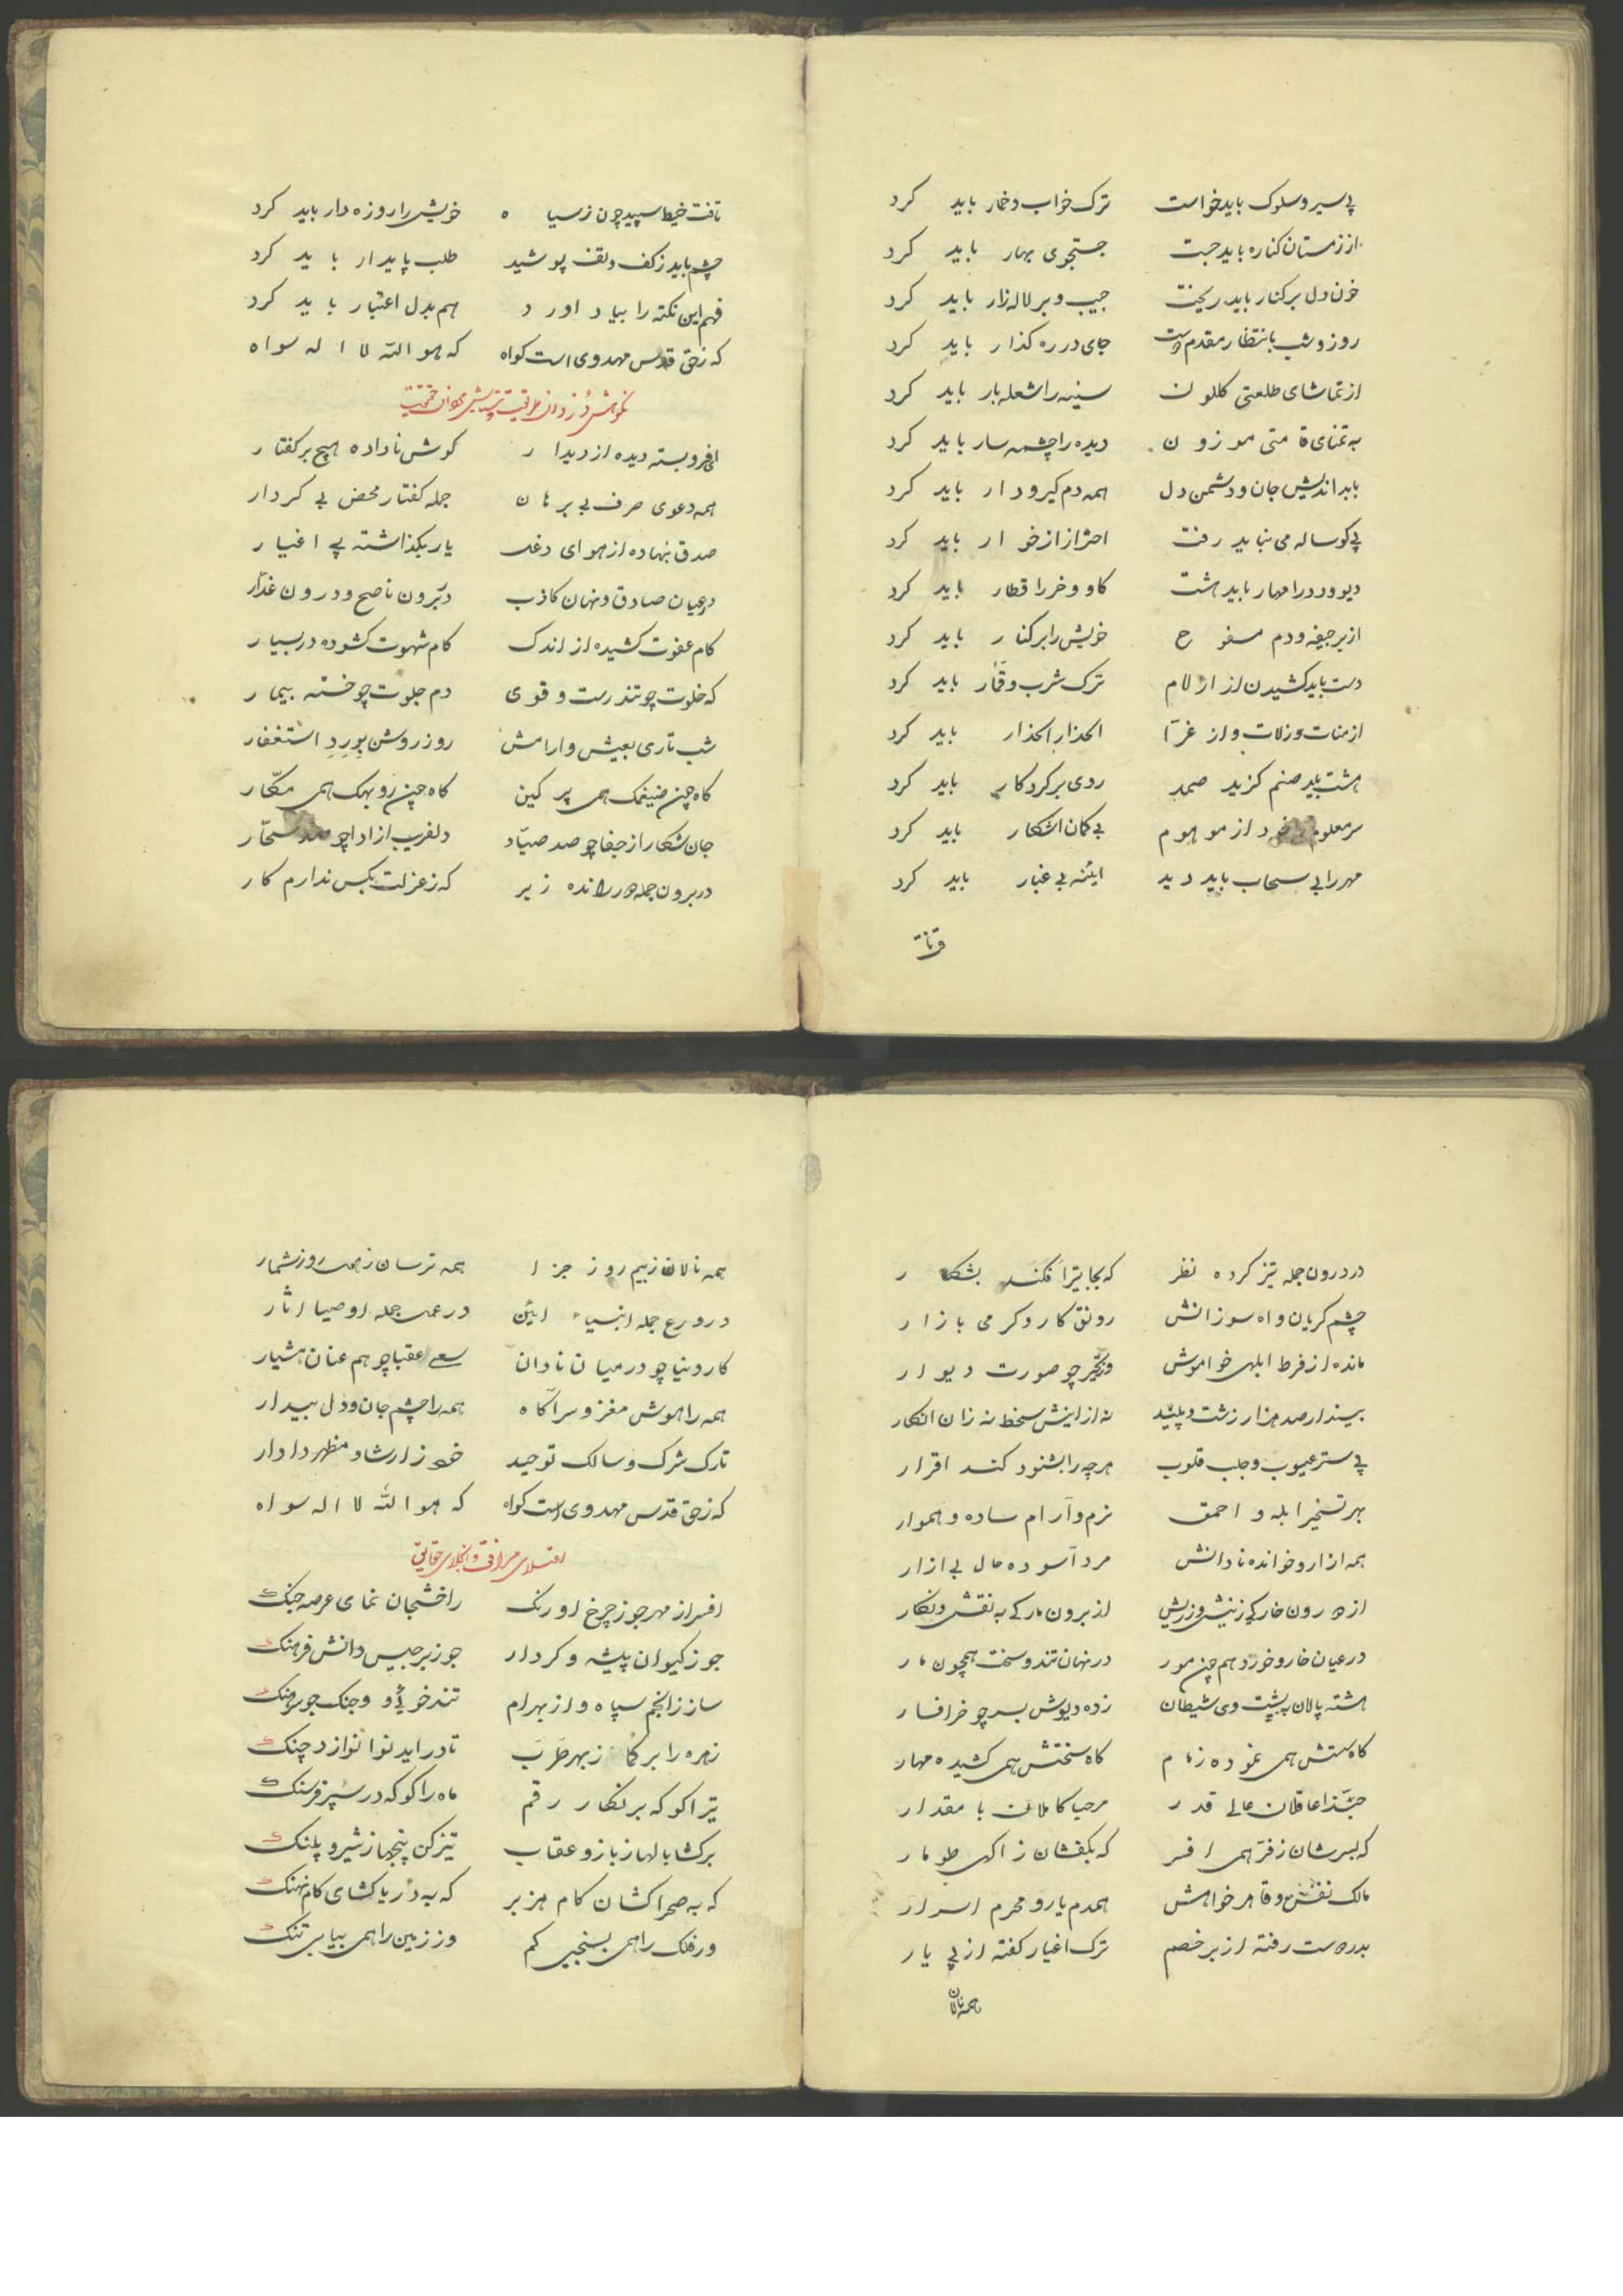 پی سیر و سلوک باید خواست ترک خواب و خمار باید کرد
از زمستان کناره باید جست جستجوی بهار باید کرد
خون دل بر کنار باید ریخت جیب و بر لاله زار باید کرد
روز و شب بانتظار مقدم دوست جای در ره کذار باید کرد
از تماشای طلعتی کلکون سینه را شعله بار باید کرد
به تمنای قامتی موزون دیده را چشمه سار باید کرد
با بد اندیش جان و دشمن دل همه دم کیرودار باید کرد
پی کوساله می نباید رفت احتراز از خوار باید کرد
دیو و دد را مهار باید هشت کاو و خر را قطار باید کرد
از بر جیفه و دم مسفوح خویش را بر کنار باید کرد
دست باید کشیدن از ازلام ترک شرب و قمار باید کرد
از منات و ز لات و از عزّا الحذار الحذار باید کرد
هشت باید صنم کزید صمد روی بر کردکار باید کرد
سر معلوم از موهوم بی کمان اشکار باید کرد
مهر را بی سحاب باید دید ایٔنه بی غبار باید کرد
تافت خیط سپید چون ز سیاه خویش را روزه دار باید کرد
چشم باید ز کف و تف پوشید طلب پایدار باید کرد
فهم این نکته را بیاد اورد هم بدل اعتبار باید کرد
که ز حق قدس مهدوی است کواه که هو اللّه لا اله سواه
نکوهش دزدان طریقت و ستایش حقیقت
ای فروبسته دیده از دیدار کوش ناداده هیچ بر کفتار
همه دعوی صرف بی برهان جمله کفتار محض بی کردار
صدق بنهاده از هوای دغل یار بکذاشته پی اغیار
در عیان صادق و نهان کاذب در برون ناصح و درون غدّار
کام عفوت کشیده از اندک کام شهوت کشوده در بسیار
که خلوت چو تندرست و قوی دم جلوت چو خسته بیمار
شب تاری بعیش و ارامش روز روشن بوِردِ استغفار
کاه چون ضیغمک همی پر کین کاه چون روبهک همی مکّار
جان شکار از جفا چو صد صیّاد دلفریب از ادا چو صد سحّار
در برون جمله را رانده ز بر که ز عزلت بکس ندارم کار
در درون جمله تیز کرده نظر که کجا تیر افکند بشکار
چشم کریان و اه سوزانش رونق کار و کرمی بازار
مانده از فرط ابلهی خواموش در تحیّر چو صورت دیوار
بیند ار صد هزار زشت و پلید نه از اینش سخط نه زان انکار
پی ستر عیوب و جلب قلوب هر چه را بشنود کند اقرار
بهر تسخیر ابله و احمق نرم و آرام ساده و هموار
همه ازار و خوانده نادانش مرد آسوده حال بی ازار
از درون خارکی ز نیش و ز ریش از برون مارکی به نقش و نکار
در عیان خار و خورد هم چون مور در نهان تند و سخت همچون مار
هشته پالان به پشت وی شیطان زده دیوش بسر چو خر افسار
کاه سستش همی نموده زمام کاه سختش همی کشیده مهار
حبّذا عاقلان عالی قدر مرحبا کاملان با مقدار
که بسرشان ز فرّ همی افسر که بکفشان ز اکهی طومار
مالک نفس و قاهر خواهش همدم یار و محرم اسرار
بدر دوست رفته از بر خصم ترک اغیار کفته از پی یار
همه نالان ز بیم روز جزا همه ترسان ز هول روز شمار
در ورع جمله انبیاء ایٔین در عمل جمله اوصیا اثار
کار دنیا چو در میان نادان سعی عقبا چو هم عنان هشیار
همه را هوش مغز و سر آکاه همه را چشم جان و دل بیدار
تارک شرک و سالک توحید خود ز ارشاد مظهر دادار
که ز حق قدس مهدوی است کواه که هو اللّه لا اله سواه
اعتلای مرافق و انجلای حقایق
افسر از مهر جو ز چرخ اورنک راخشجان نمای عرصه جنک
جو ز کیوان پیشه و کردار جو ز برجیس دانش فرهنک
ساز ز انجم سپاه و از بهرام تندخویٔی و جنک جو سرهنک
زهره را بر کما ز بهر طرب تا در اید نوا نوازد چنک
تیر اکو که بر نکار رقم ماه را کو که در سپر فرسنک
بر کشا بالها ز باز و عقاب تیز کن پنجها ز شیر و پلنک
که به صحرا کشان کام هزبر که به دریا کشای کام نهنک
ور فلک را همی بسنجی کم ور زمین را همی بیابی تنک